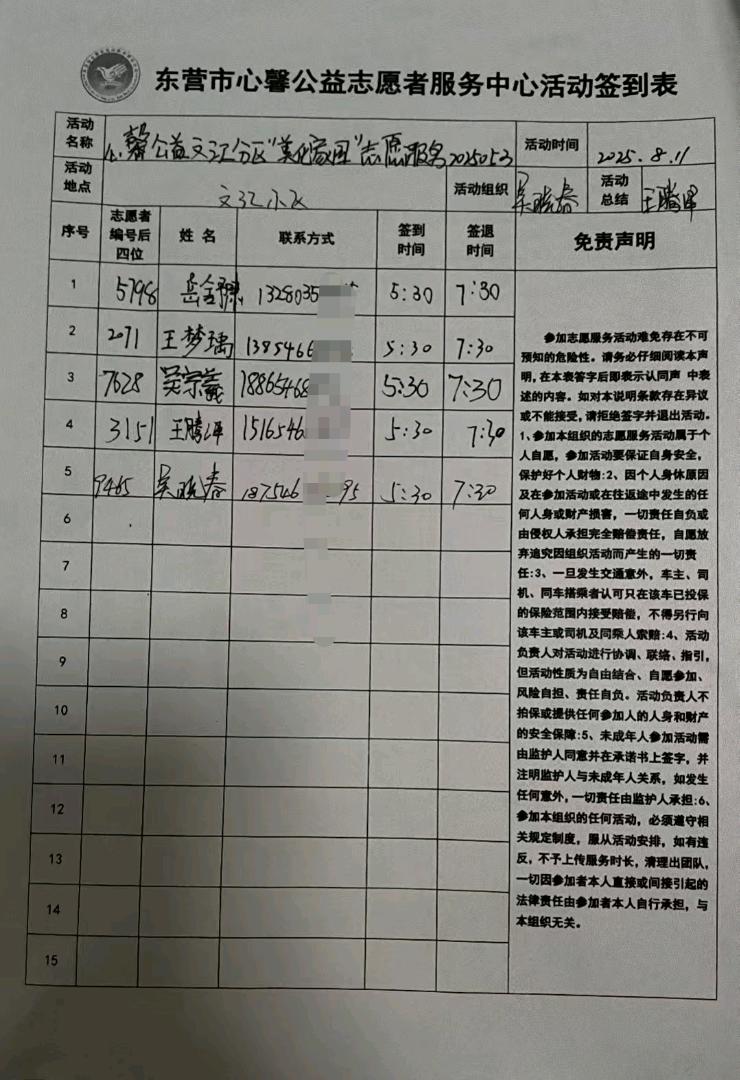 东营市心馨公益志愿者服务中心活动签到表
活动名称 心馨公益文汇分区"美化家园"志愿服务20250513 活动时间 2025.8.11
活动地点 文汇小区 活动组织 吴晓春 活动总结 王腾
序号 志愿者编号后四位 姓名 联系方式 签到时间 签退时间 免责声明
1 5798 岳 1328035 5:30 7:30
2 2071 王梦瑀 1385466 5:30 7:30
3 7628 吴宗羲 18865468 5:30 7:30
4 3151 王腾 1516546 5:30 7:30
5 9465 吴晓春 187546 95 5:30 7:30
6
7
8
9
10
11
12
13
14
15
参加志愿服务活动难免存在不可
预知的危险性。请务必仔细阅读本声
明,在本表签字后即表示认同声 中表
述的内容。如对本说明条款存在异议
或不能接受,请拒绝签字并退出活动。
1、参加本组织的志愿服务活动属于个
人自愿,参加活动要保证自身安全,
保护好个人财物:2、因个人身休原因
及在参加活动或在往返途中发生的任
何人身或财产损害,一切责任自负或
由侵权人承担完全赔偿责任,自愿放
弃追究因组织活动而产生的一切责
任:3、一旦发生交通意外,车主、司
机、同车搭乘者认可只在该车已投保
的保险范围内接受赔偿,不得另行向
该车主或司机及同乘人索赔:4、活动
负责人对活动进行协调、联络、指引,
但活动性质为自由结合、自愿参加、
风险自担、责任自负。活动负责人不
拍保或提供任何参加人的人身和财产
的安全保障:5、未成年人参加活动需
由监护人同意并在承诺书上签字,并
注明监护人与未成年人关系,如发生
任何意外,一切责任由监护人承担:6、
参加本组织的任何活动,必须遵守相
关规定制度,服从活动安排,如有违
反,不予上传服务时长,清理出团队,
一切因参加者本人直接或间接引起的
法律责任由参加者本人自行承担,与
本组织无关。